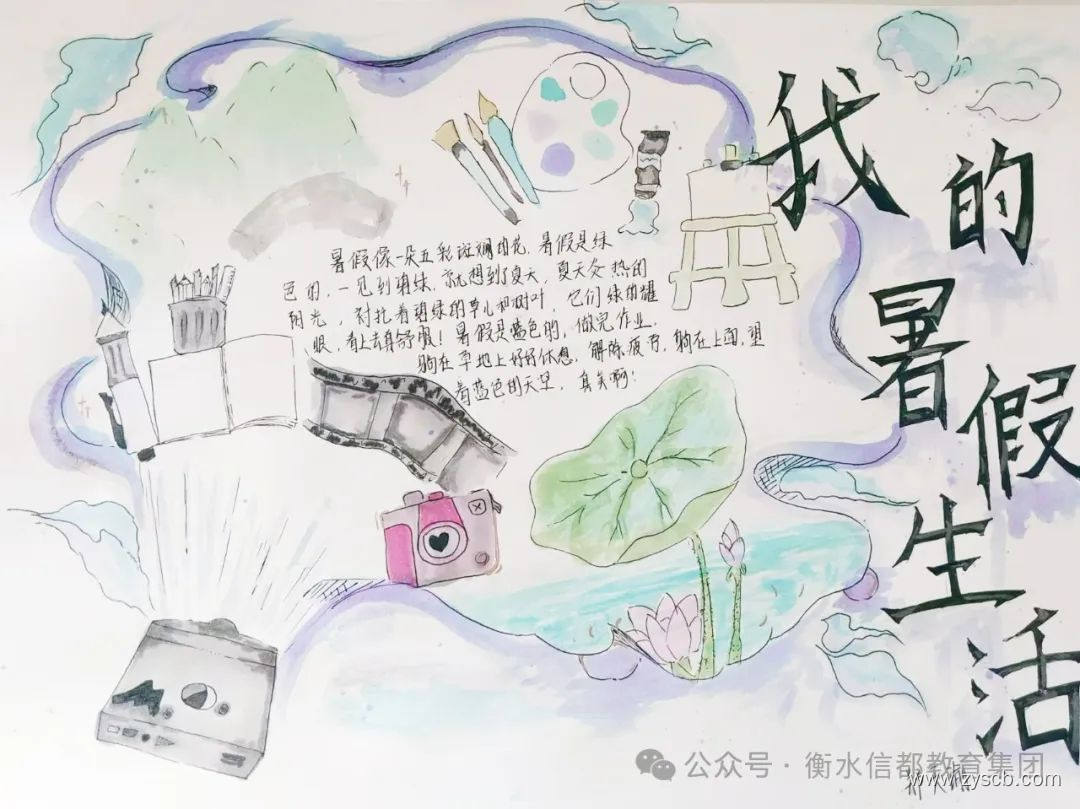 我的暑假生活
暑假像一朵五彩斑斓的花，暑假是绿
色的，一见到碧绿，就想到了夏天，夏天炎热的
阳光，对扎着碧绿的草儿和树叶，它们绿的耀
眼，看上去真舒服！暑假是蓝色的，做完作业，
躺在草地上好好休息，解除疲劳，躺在上面，望
着蓝色的天空，真美啊！
公众号·衡水信都教育集团
www.zyscb.com